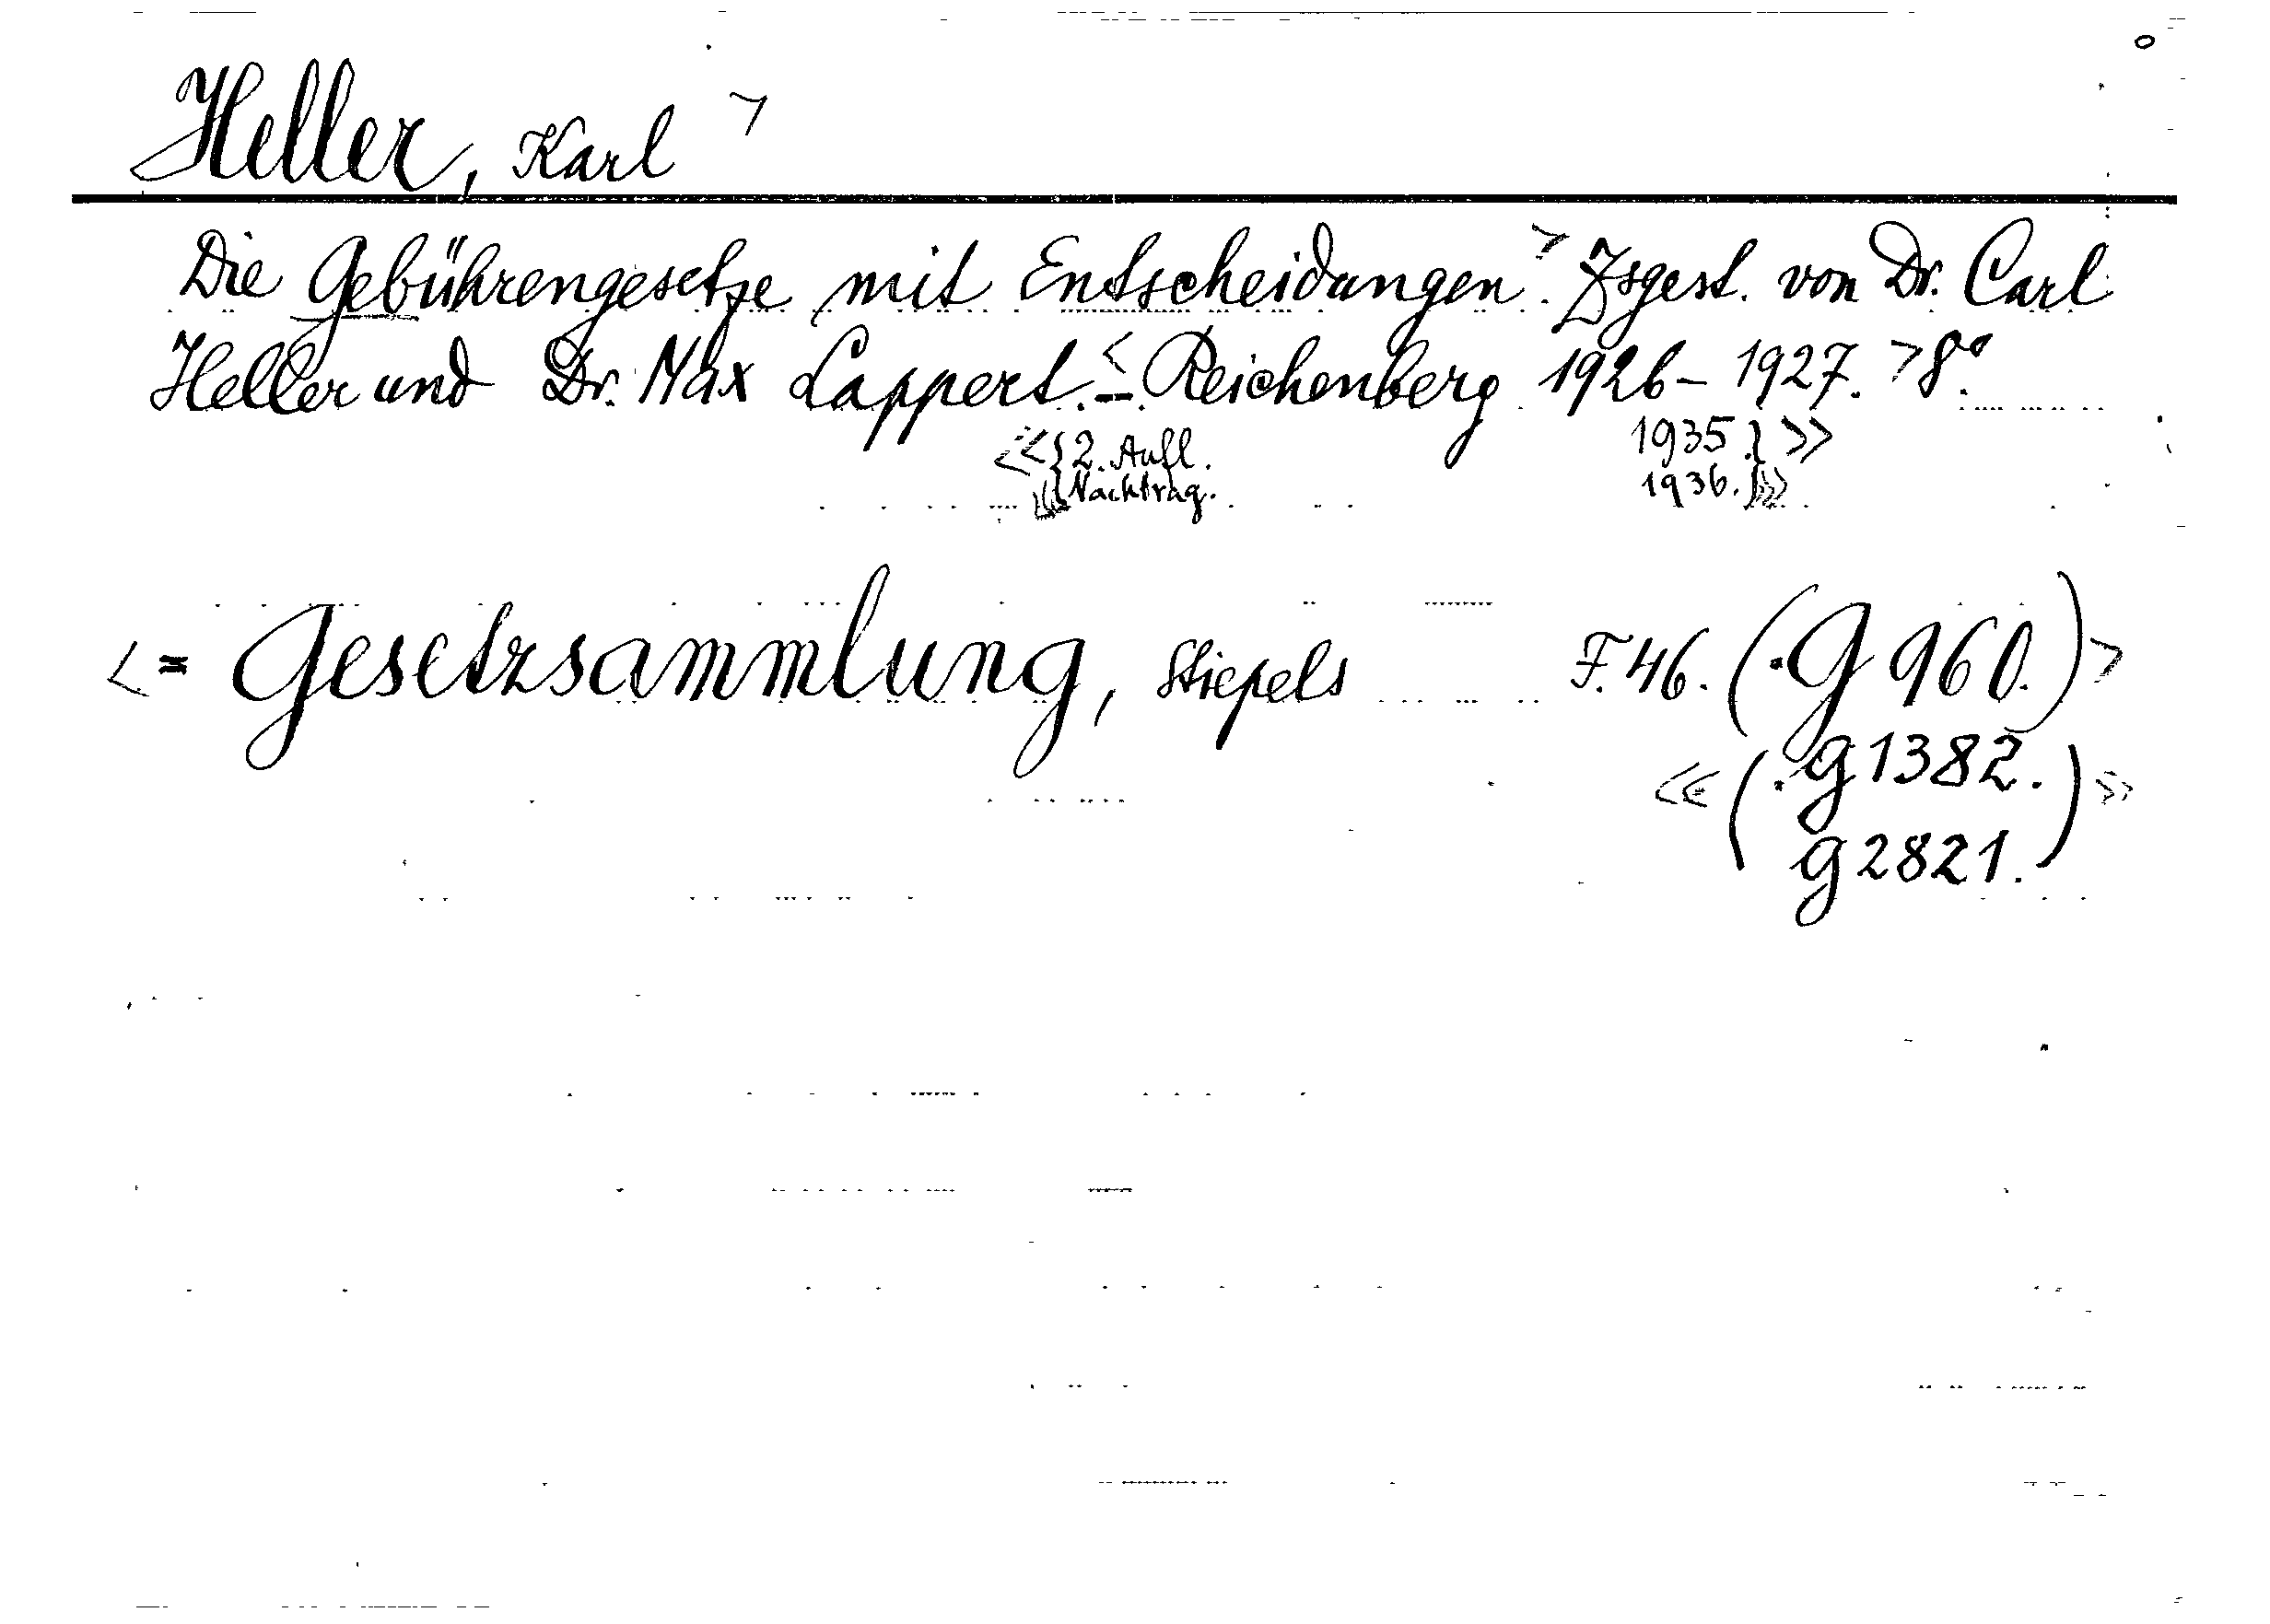 Heller, Karl >
Die Gebührengesetze mit Entscheidungen.> Zsgest. von Dr. Carl
Heller und Dr. Max Lappert. <– Reichenberg 1926–1927. >8°.
<<{2. Aufl. 1935.}>>
<<<{Nachtrag. 1936.}>>>
< = Gesetzsammlung, Stiepels F. 46. (·G 960.) >
<< (·g 1382.
g 2821.) >>